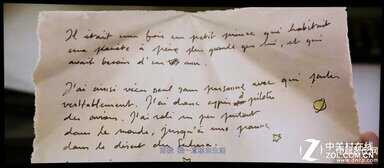 Il était une fois un petit prince qui habitait
une planète à peine plus grande que lui, et qui
avait besoin d'un ami.
J'ai ainsi vécu seul sans personne avec qui parler
véritablement. J'ai donc appris à piloter
des avions. J'ai volé un peu partout
dans le monde, jusqu'à une panne
dans le désert du Sahara.
ZOL
中关村在线